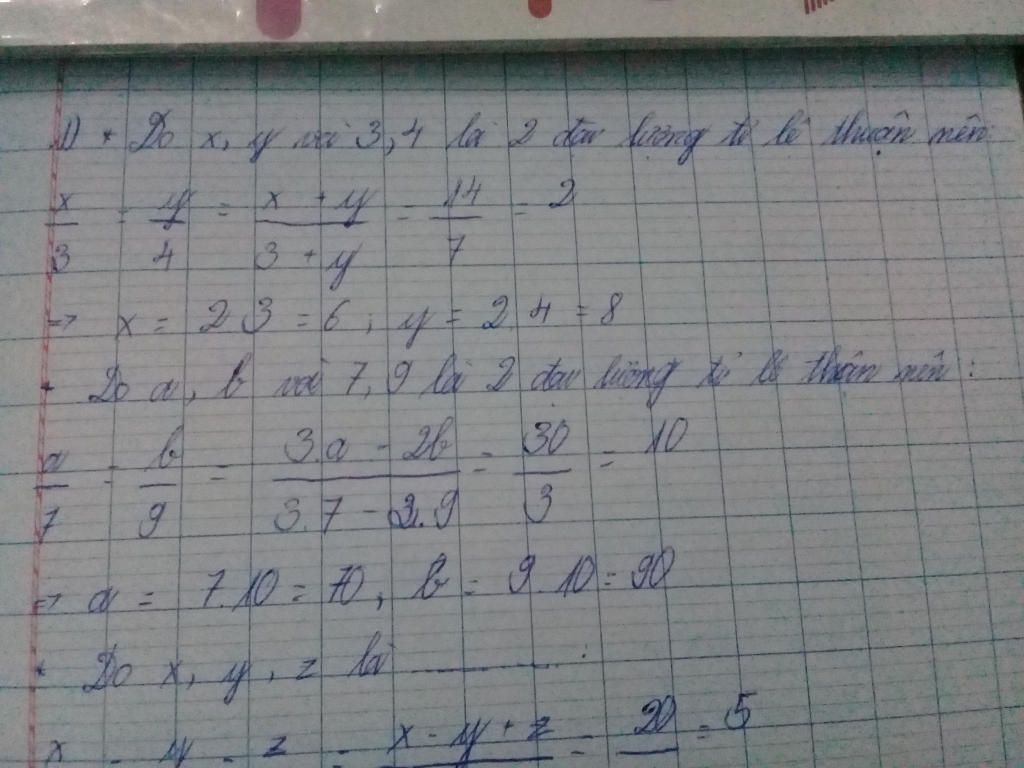 1) * Do x, y với 3, 4 là 2 đại lượng tỉ lệ thuận nên:
x/3 = y/4 = x + y / 3 + y = 14/7 = 2
=> x = 2.3 = 6 ; y = 2.4 = 8
* Do a, b với 7, 9 là 2 đại lượng tỉ lệ thuận nên :
a/7 = b/9 = 3.a - 2b / 3.7 - 2.9 = 30/3 = 10
=> a = 7.10 = 70, b = 9.10 = 90
* Do x, y, z là ............ :
x = y = z = x - y + z = 20 = 5